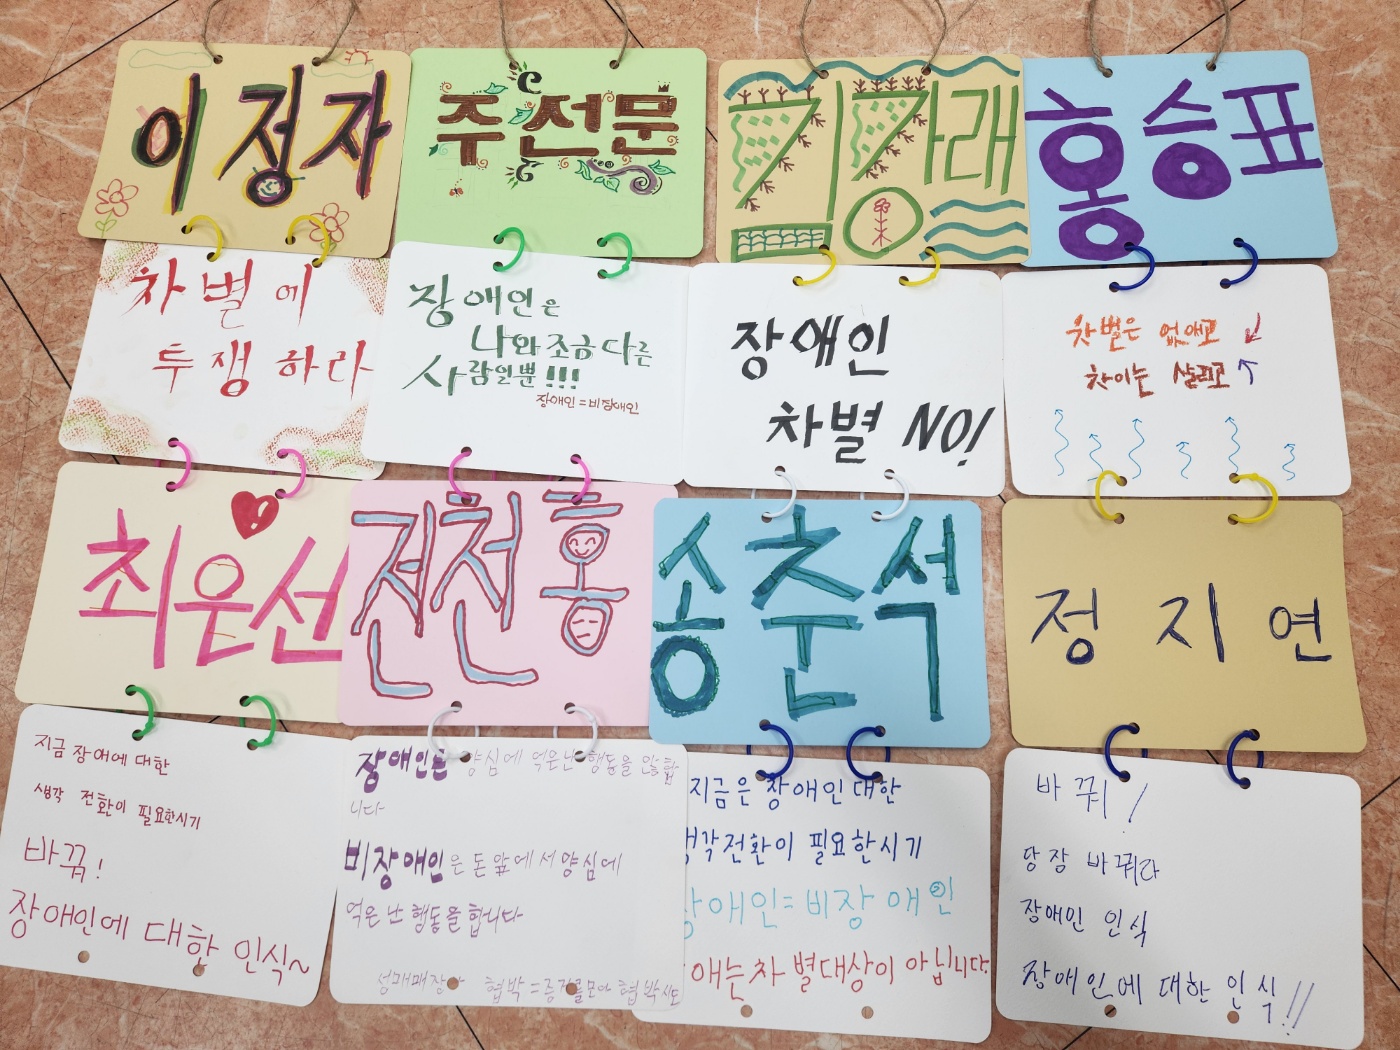 이정자
주선문
홍승표
차별에
투쟁하라
장애인은
나와 조금 다른
사람일뿐!!!
장애인=비장애인
장애인
차별 NO!
차별은 없애고 ↓
차이는 살리고 ↑
최은선
전천홍
송춘석
정지연
지금 장애에 대한
생각 전환이 필요한시기
바꿈!
장애인에 대한 인식~
장애인은 양심에 억은난 행동을 안합
니다
비장애인은 돈 앞에서 양심에
억은 난 행동을 합니다
성매매장사 협박=증거를모아 협박시도
지금은 장애인대한
생각전환이 필요한시기
장애인=비장애인
장애는차별대상이 아닙니다.
바꿔!
당장 바꿔라
장애인 인식
장애인에 대한 인식!!